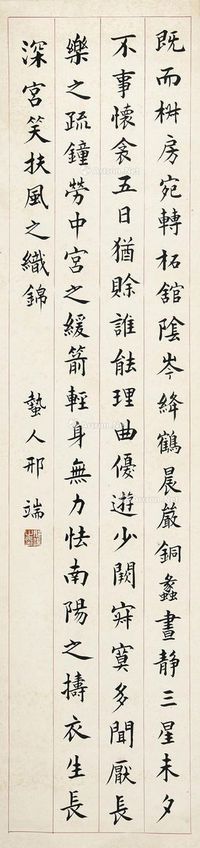 既而椒房宛轉柘舘陰岑絳鶴晨嚴銅蠡晝静三星未夕
不事懷衾五日猶賒誰能理曲優遊少闕寂寞多閒厭長
樂之疏鐘勞中宮之緩箭輕身無力怯南陽之擣衣生長
深宮笑扶風之織錦
蟄人邢端